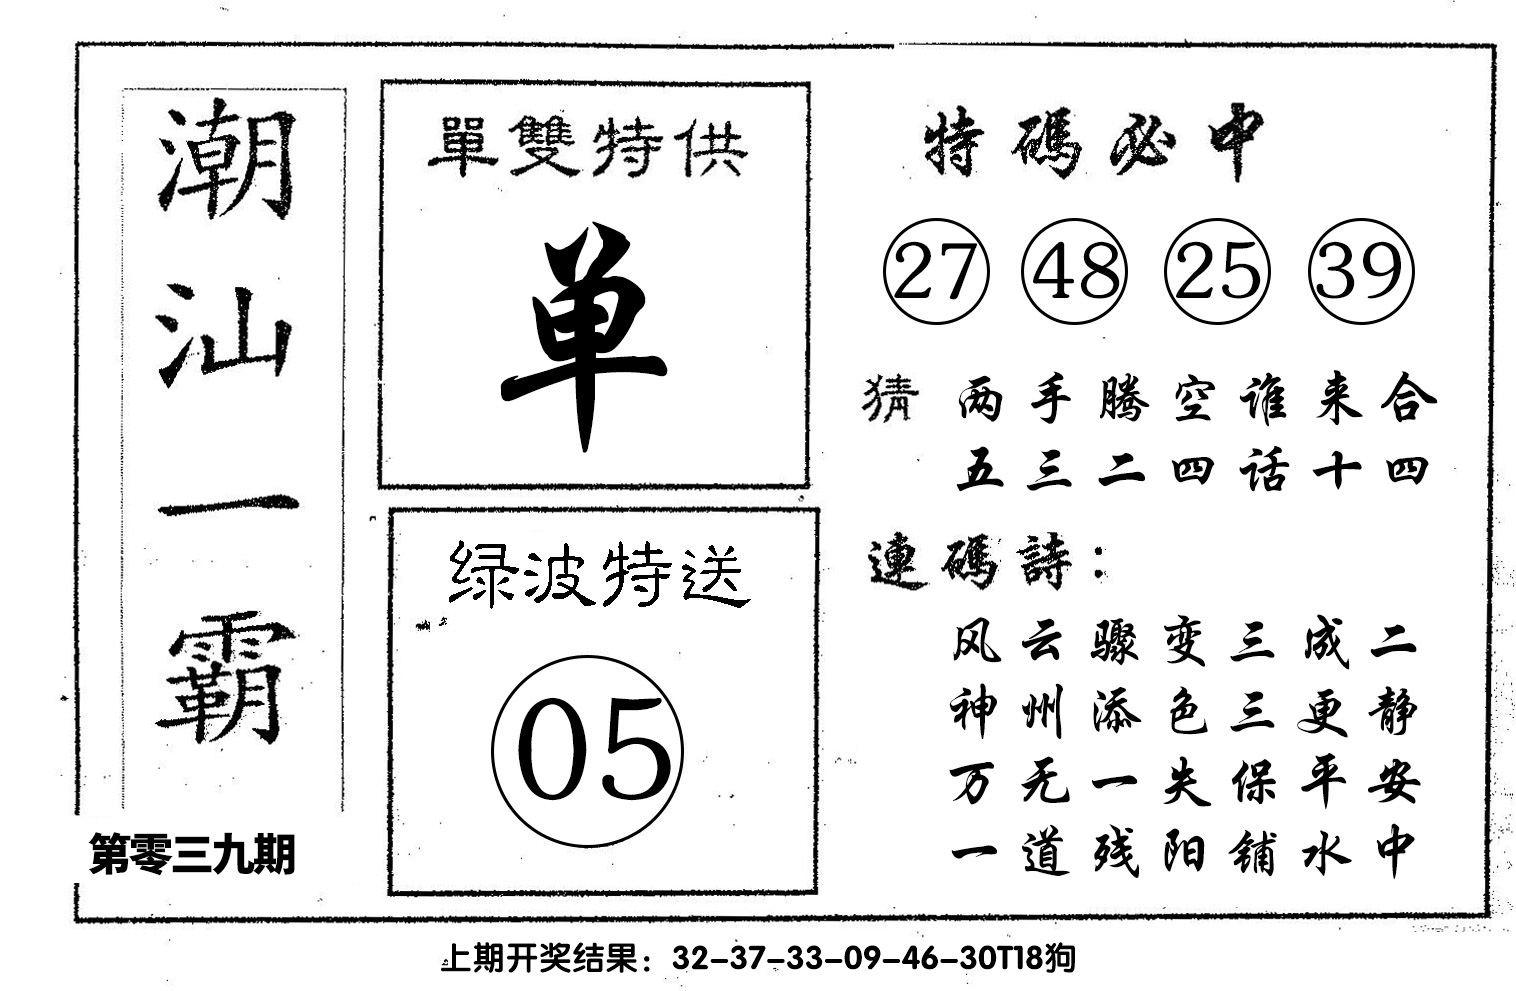 潮汕一霸
第零三九期
單雙特供
单
绿波特送
05
特碼必中
27 48 25 39
猜 两手腾空谁来合
五三二四话十四
連碼詩：
风云骤变三成二
神州添色三更静
万无一失保平安
一道残阳铺水中
上期开奖结果：32-37-33-09-46-30T18狗